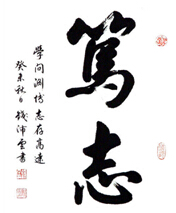 篤志
學問淵博志存高遠
癸未秋日錢沛雲書